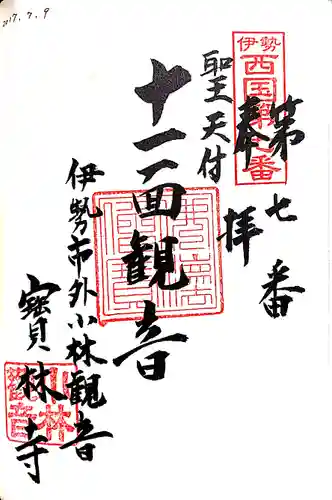 2017.7.9
伊勢
西国第七番
第七番
奉拝
聖天付
十一面観音
伊勢市外小林観音
寳林寺
小林
観音